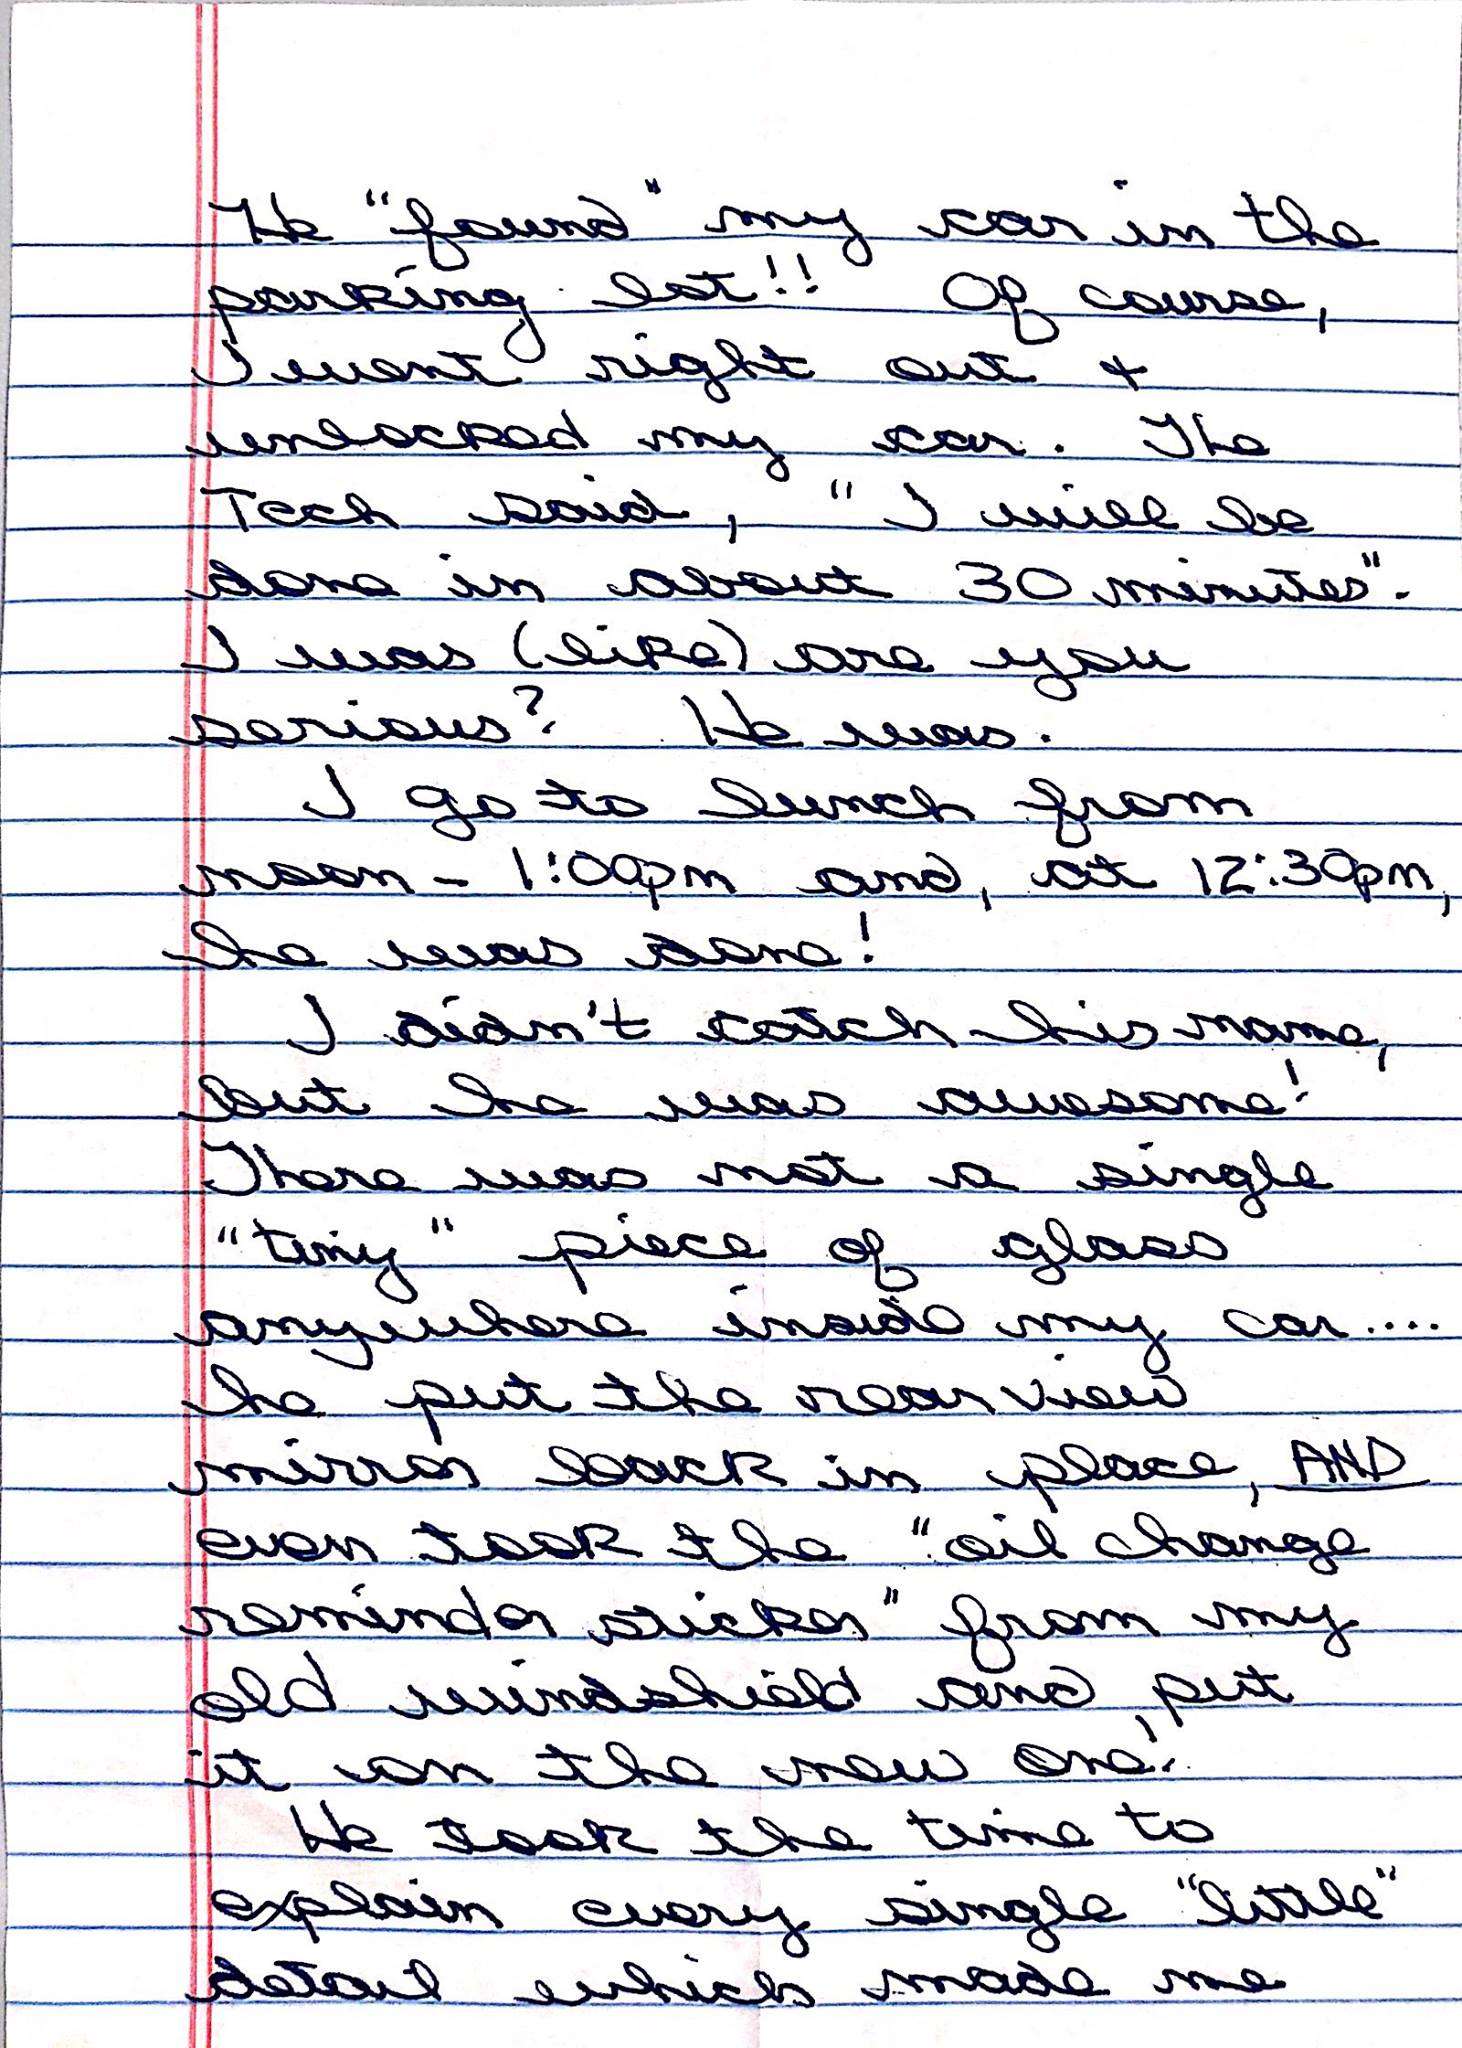 He "found" my car in the
parking lot!! Of course,
I went right out +
unlocked my car. The
Tech said, "I will be
done in about 30 minutes".
I was (like) are you
serious? He was.
I go to lunch from
noon - 1:00pm and, at 12:30pm,
he was done!
I didn't catch his name,
but he was awesome!
There was not a single
"tiny" piece of glass
anywhere inside my car....
he put the rearview
mirror back in place, AND
even took the "oil change
reminder sticker" from my
old windshield and, put
it on the new one!
He took the time to
explain every single "little"
detail which made me